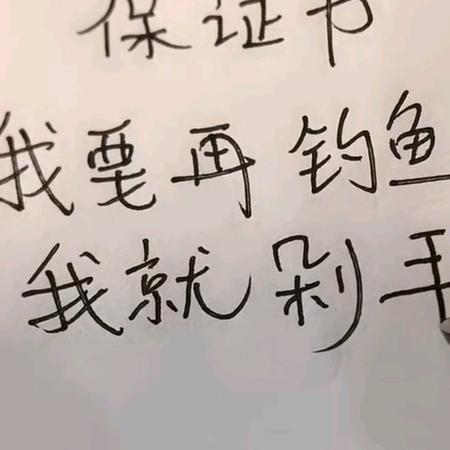 保证书
我要再钓鱼
我就剁手